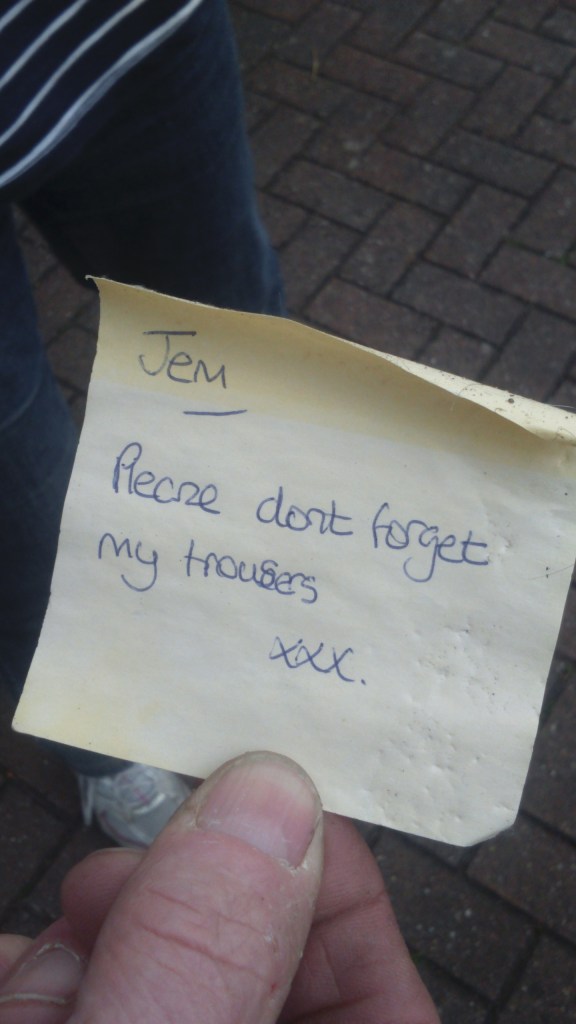 Jem
Please dont forget
my trousers
xxx.